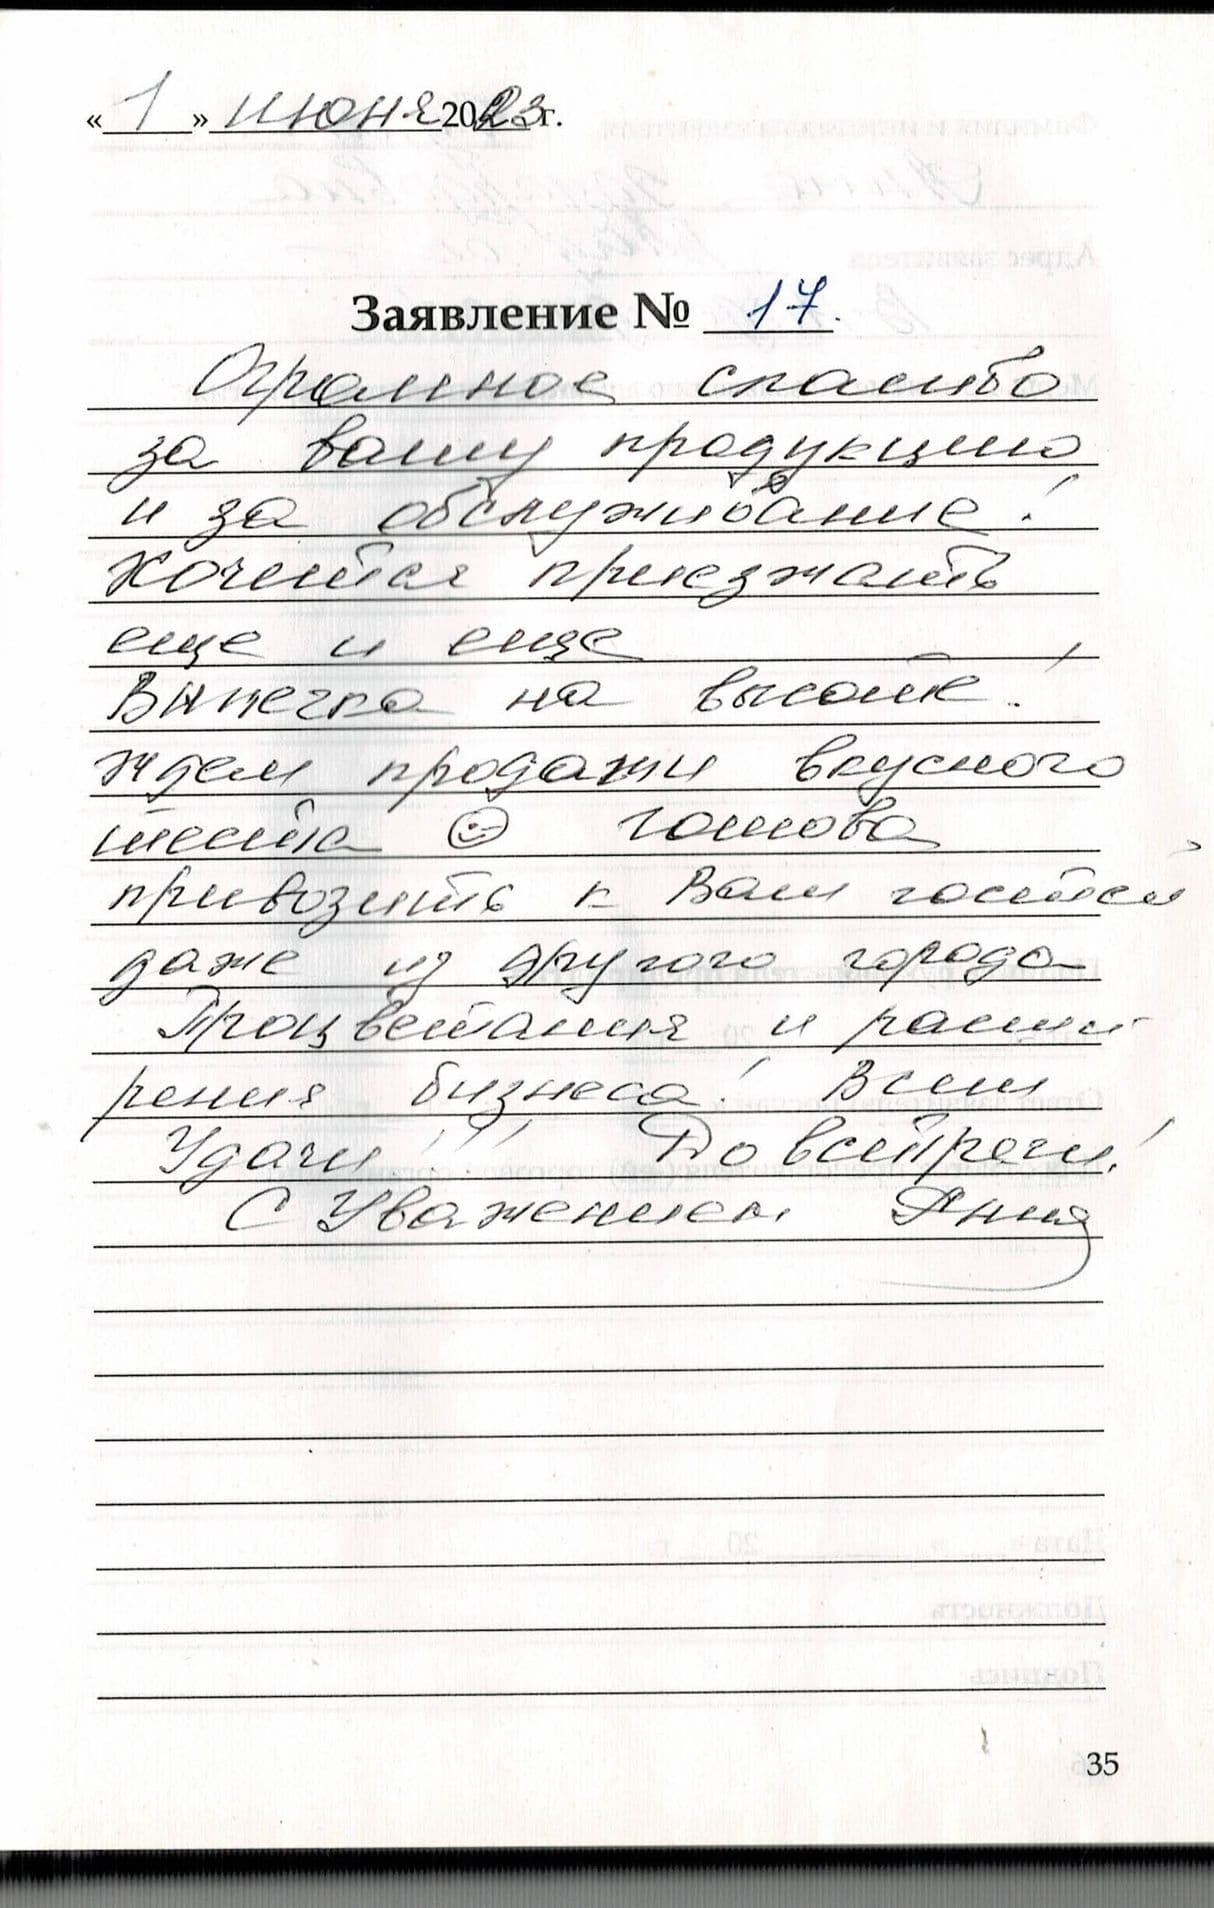 « 1 » июня 2023 г.
Заявление № 17.
Огромное спасибо
за вашу продукцию
и за обслуживание!
Хочется приезжать
еще и еще
Выпечка на высоте!
Ждем продажи вкусного
теста ☺ готова
привозить к Вам гостей
даже из другого города
Процветания и расши
рения бизнеса! Всем
Удачи!!! До встречи!
С Уважением
35